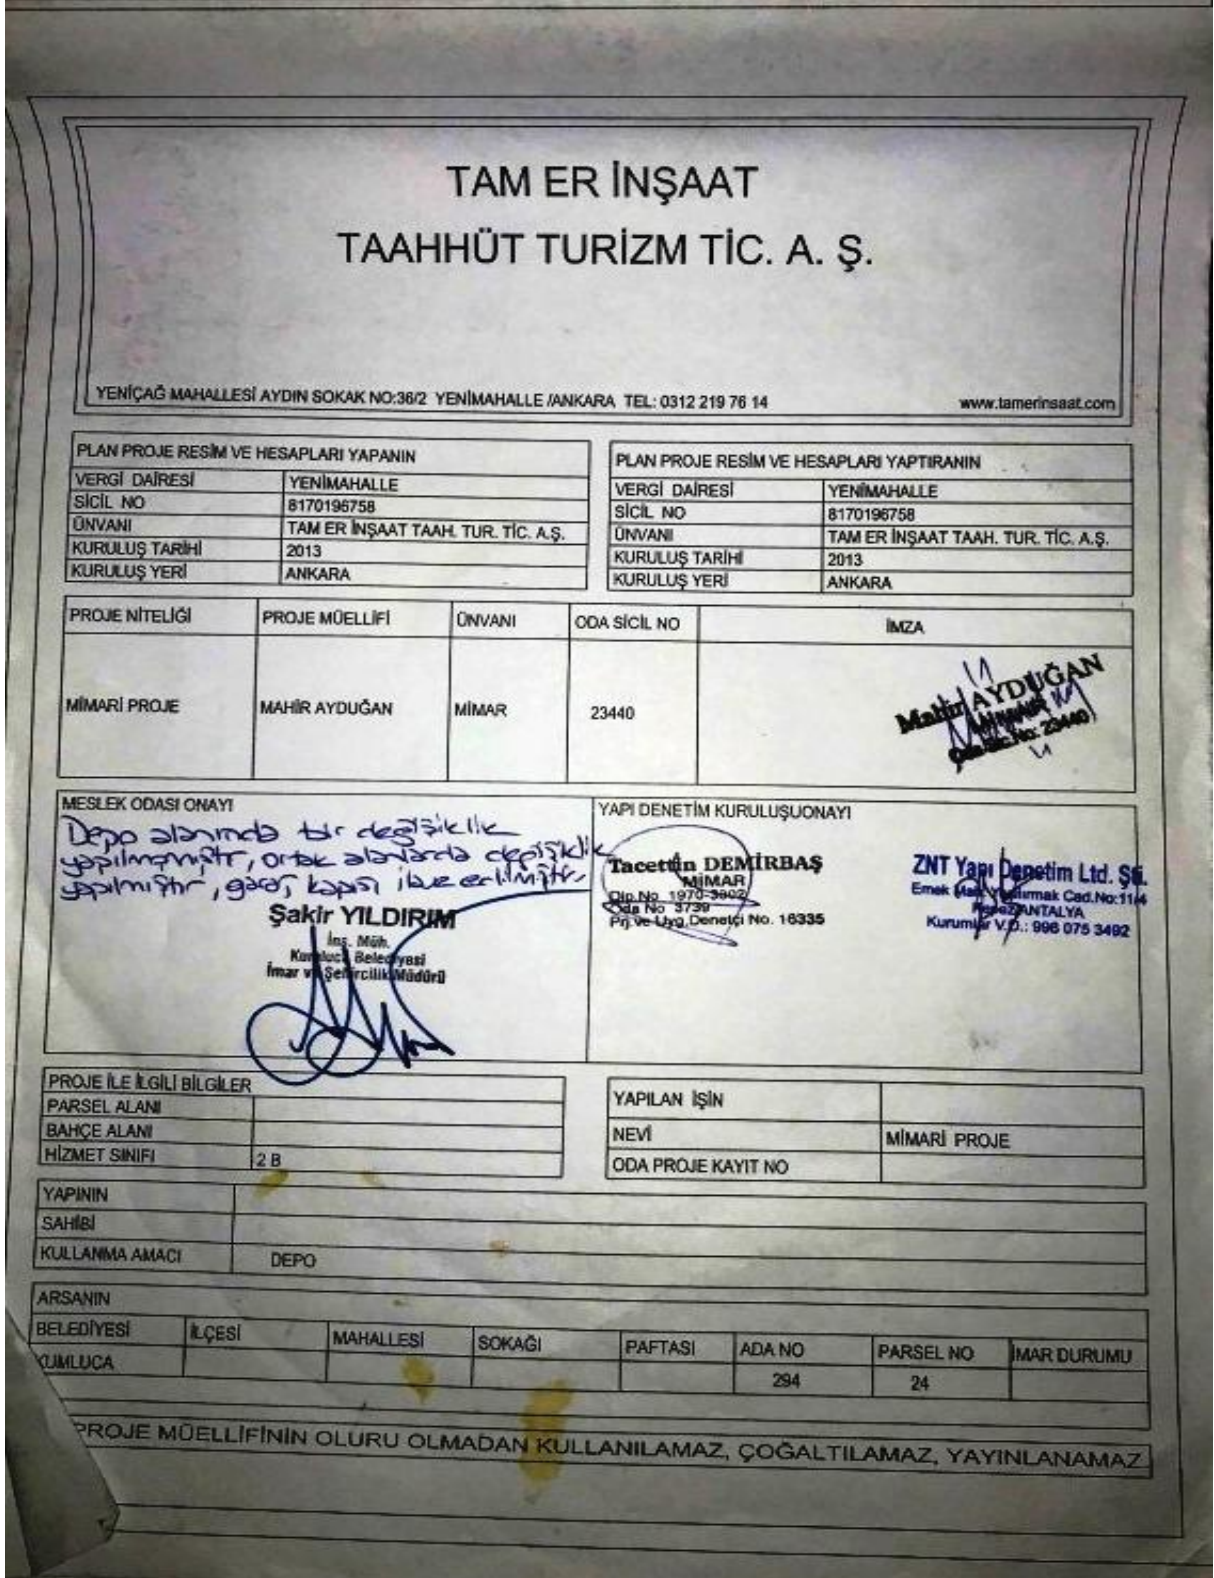 TAM ER İNŞAAT
TAAHHÜT TURİZM TİC. A. Ş.
YENİÇAĞ MAHALLESİ AYDIN SOKAK NO:36/2 YENİMAHALLE /ANKARA TEL: 0312 219 76 14 www.tamerinsaat.com
PLAN PROJE RESİM VE HESAPLARI YAPANIN
VERGİ DAİRESİ YENİMAHALLE
SİCİL NO 8170196758
ÜNVANI TAM ER İNŞAAT TAAH. TUR. TİC. A.Ş.
KURULUŞ TARİHİ 2013
KURULUŞ YERİ ANKARA
PLAN PROJE RESİM VE HESAPLARI YAPTIRANIN
VERGİ DAİRESİ YENİMAHALLE
SİCİL NO 8170196758
ÜNVANI TAM ER İNŞAAT TAAH. TUR. TİC. A.Ş.
KURULUŞ TARİHİ 2013
KURULUŞ YERİ ANKARA
PROJE NİTELİĞİ PROJE MÜELLİFİ ÜNVANI ODA SİCİL NO İMZA
MİMARİ PROJE MAHİR AYDUĞAN MİMAR 23440
Mahir AYDUĞAN
Oda Sic.No: 23440
MESLEK ODASI ONAYI
Depo alanında bir değişiklik
yapılmamıştır, ortak alanlarda değişiklik
yapılmıştır, garaj kapısı ilave edilmiştir.
Şakir YILDIRIM
İnş. Müh.
Kumluca Belediyesi
İmar ve Şehircilik Müdürü
YAPI DENETİM KURULUŞUONAYI
Tacettin DEMİRBAŞ
MİMAR
Dip.No 1970-3902
Oda No 3739
Prj.ve Uyg.Denetçi No. 16335
ZNT Yapı Denetim Ltd. Şti.
Emek Mah. Cad.No:11/4
Kepez/ANTALYA
Kurumlar V.D.: 996 075 3492
PROJE İLE İLGİLİ BİLGİLER
PARSEL ALANI
BAHÇE ALANI
HİZMET SINIFI 2 B
YAPILAN İŞİN
NEVİ MİMARİ PROJE
ODA PROJE KAYIT NO
YAPININ
SAHİBİ
KULLANMA AMACI DEPO
ARSANIN
BELEDİYESİ İLÇESİ MAHALLESİ SOKAĞI PAFTASI ADA NO PARSEL NO İMAR DURUMU
KUMLUCA 294 24
PROJE MÜELLİFİNİN OLURU OLMADAN KULLANILAMAZ, ÇOĞALTILAMAZ, YAYINLANAMAZ